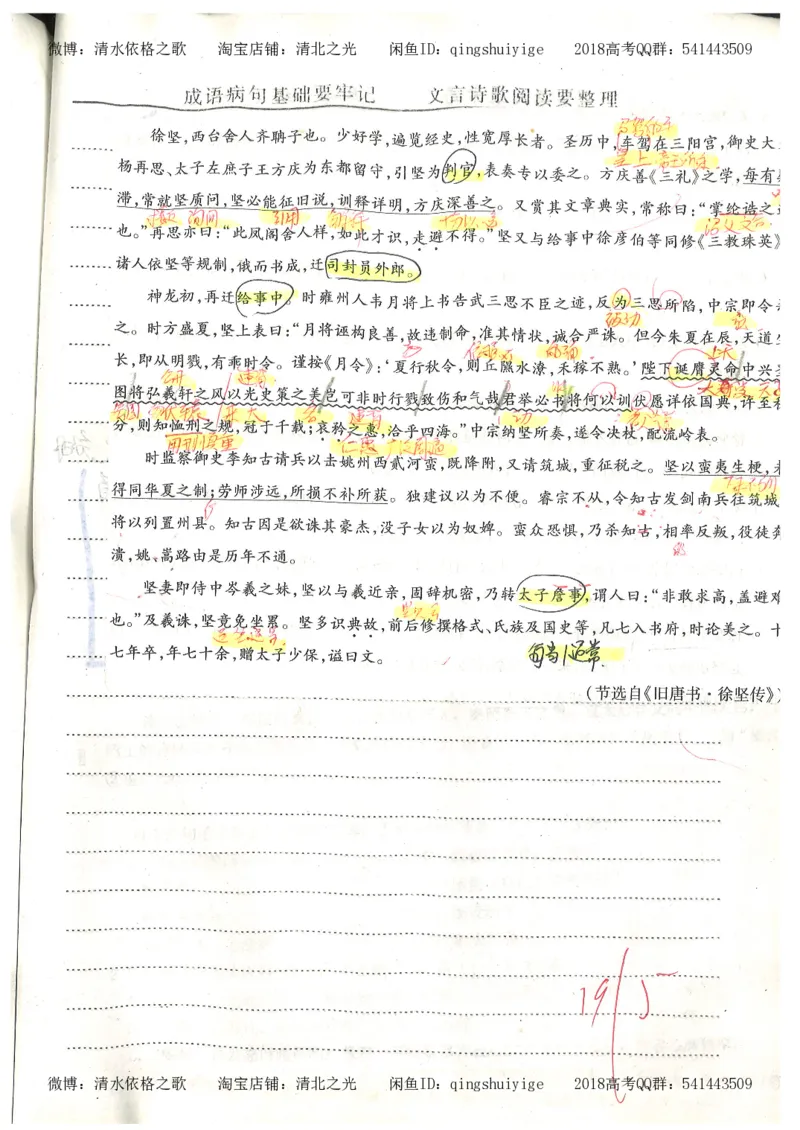 微博：清水依格之歌 淘宝店铺：清北之光 闲鱼ID：qingshuiyige 2018高考QQ群：541443509
成语病句基础要牢记 文言诗歌阅读要整理
徐坚,西台舍人齐聃子也。少好学,遍览经史,性宽厚长者。圣历中,车驾在三阳宫,御史大
皇上 帝王所乘
杨再思、太子左庶子王方庆为东都留守,引坚为判官,表奏专以委之。方庆善《三礼》之学,每有
滞,常就坚质问,坚必能征旧说,训释详明,方庆深善之。又赏其文章典实,常称曰:“掌纶诰之
询问 引用
也。”再思亦曰:“此凤阁舍人样,如此才识,走避不得。”坚又与给事中徐彦伯等同修《三教珠英》
诸人依坚等规制,俄而书成,迁司封员外郎。
神龙初,再迁给事中。时雍州人韦月将上书告武三思不臣之迹,反为三思所陷,中宗即令
之。时方盛夏,坚上表曰:“月将诬构良善,故违制命,准其情状,诚合严诛。但今朱夏在辰,天道
长,即从明戮,有乖时令。谨按《月令》:‘夏行秋令,则丘隰水潦,禾稼不熟。’陛下诞膺灵命中兴
上天
图将弘羲轩之风以光史策之美岂可非时行戮致伤和气哉君举必书将何以训伏愿详依国典,许至
分,则知恤刑之规,冠于千载;哀矜之惠,洽乎四海。”中宗纳坚所奏,遂令决杖,配流岭表。
用刑慎重 仁惠
时监察御史李知古请兵以击姚州西贰河蛮,既降附,又请筑城,重征税之。坚以蛮夷生梗,
得同华夏之制;劳师涉远,所损不补所获。独建议以为不便。睿宗不从,令知古发剑南兵往筑城
将以列置州县。知古因是欲诛其豪杰,没子女以为奴婢。蛮众恐惧,乃杀知古,相率反叛,役徒奔
溃,姚、嶲路由是历年不通。
坚妻即侍中岑羲之妹,坚以与羲近亲,固辞机密,乃转太子詹事,谓人曰:“非敢求高,盖避难
也。”及羲诛,坚竟免坐累。坚多识典故,前后修撰格式、氏族及国史等,凡七入书府,时论美之。十
七年卒,年七十余,赠太子少保,谥曰文。
(节选自《旧唐书·徐坚传》)
19
微博：清水依格之歌 淘宝店铺：清北之光 闲鱼ID：qingshuiyige 2018高考QQ群：541443509